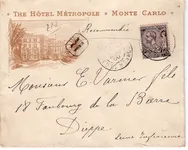 THE HÔTEL MÉTROPOLE • MONTE CARLO
Recommandée
R
Monsieur E Varnier fils
18 Faubourg de la Barre
Dieppe
Seine Inférieure